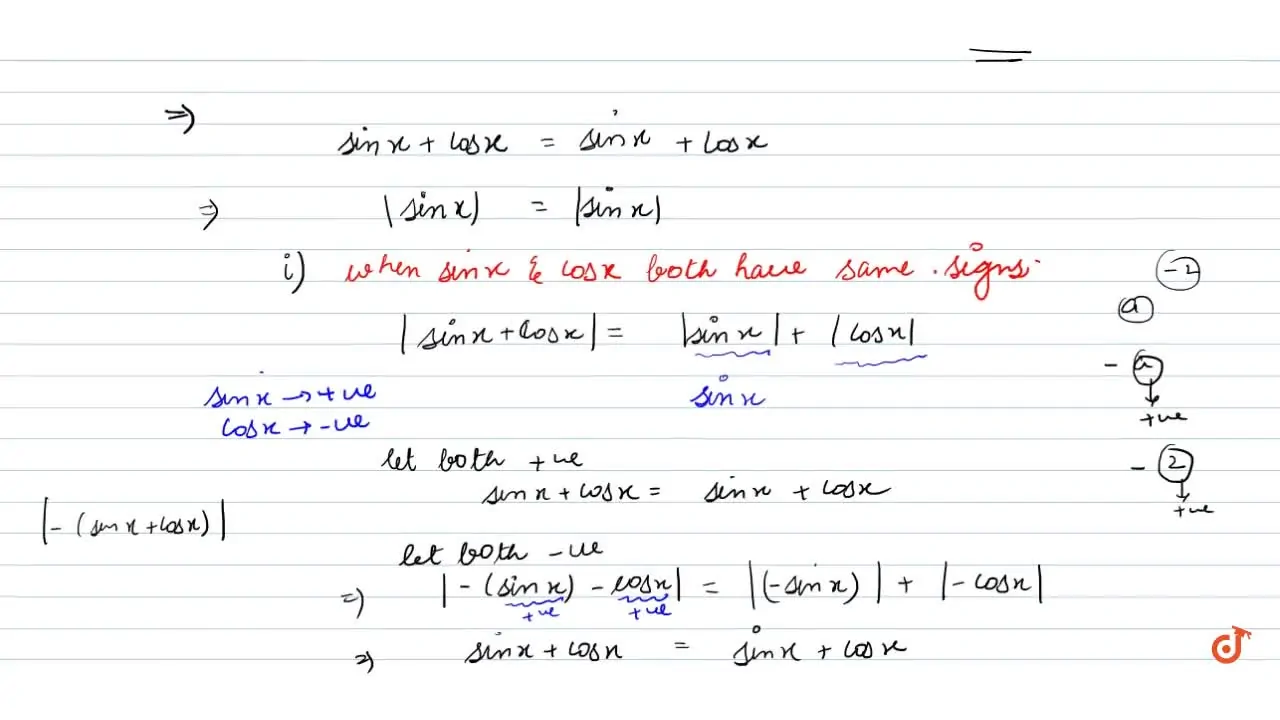 ⇒ sinx + cosx = sinx + cosx
⇒ |sinx| = |sinx|
i) when sinx & cosx both have same signs.
-2
a
|sinx + cosx| = |sinx| + |cosx|
- a
sinx → +ve sinx +ve
cosx → -ve
let both +ve - 2
sinx + cosx = sinx + cosx
+ve
|- (sinx + cosx)|
let both -ve
⇒ |-(sinx) - cosx| = |(-sinx)| + |-cosx|
+ve +ve
⇒ sinx + cosx = sinx + cosx